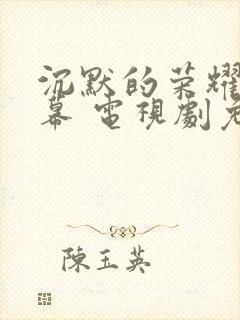 沉默的荣耀
幕 電視劇免
陳玉英